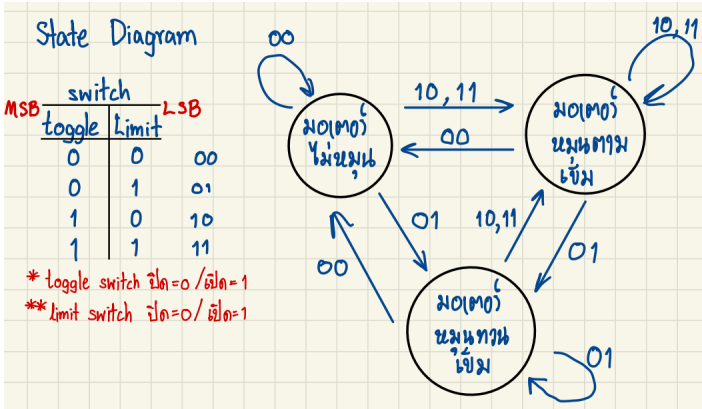 State Diagram
switch
MSB
LSB
toggle Limit
0 0 00
0 1 01
1 0 10
1 1 11
* toggle switch ปิด=0/เปิด=1
** limit switch ปิด=0/เปิด=1
00
มอเตอร์
ไม่หมุน
10,11
00
10,11
มอเตอร์
หมุนตาม
เข็ม
01
10,11
01
00
มอเตอร์
หมุนทวน
เข็ม
01